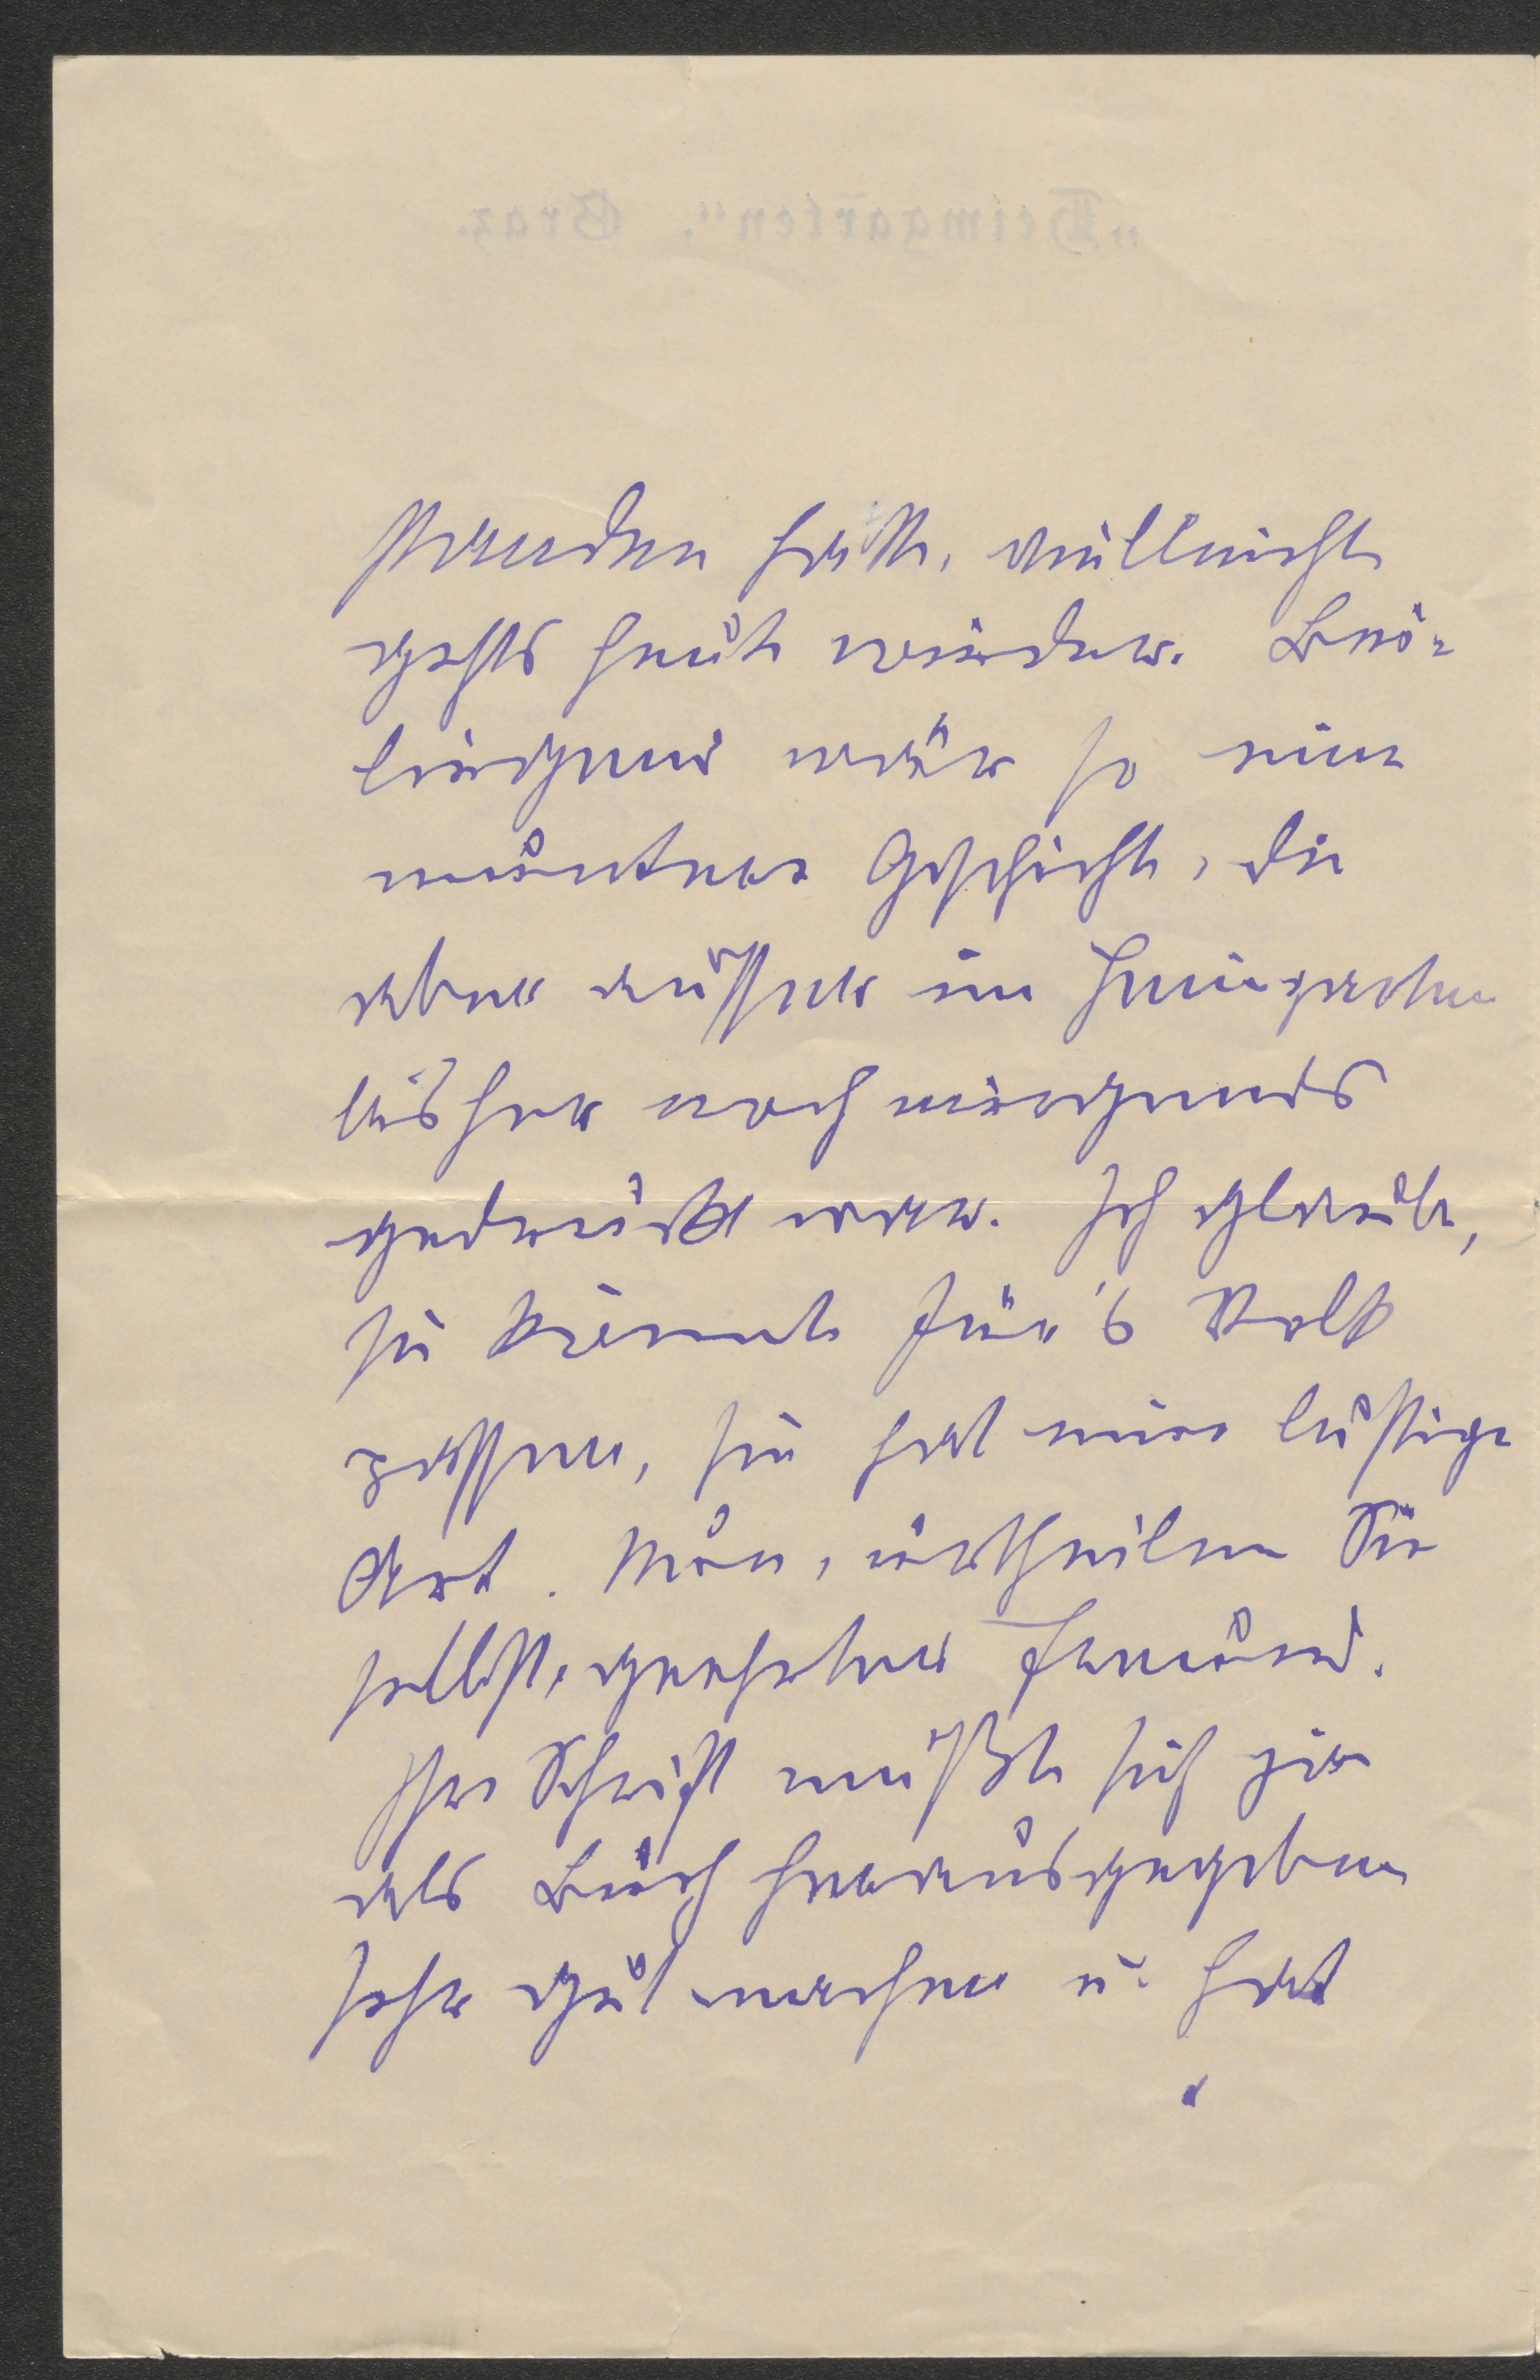 „Heimgarten“, Graz.
standen hatte, vielleicht
gehts heute wieder. Bei=
liegend wär so eine
muntere Geschichte, die
aber außer im Heimgarten
bisher noch nirgends
gedruckt war. Ich glaube,
sie könnte für's Volk
passen, sie hat eine lustige
Art. Nun, urtheilen Sie
selbst, geehrter Freund.
Ihre Schrift müßte sich
als Buch herausgegeben
sehr gut machen u. hat